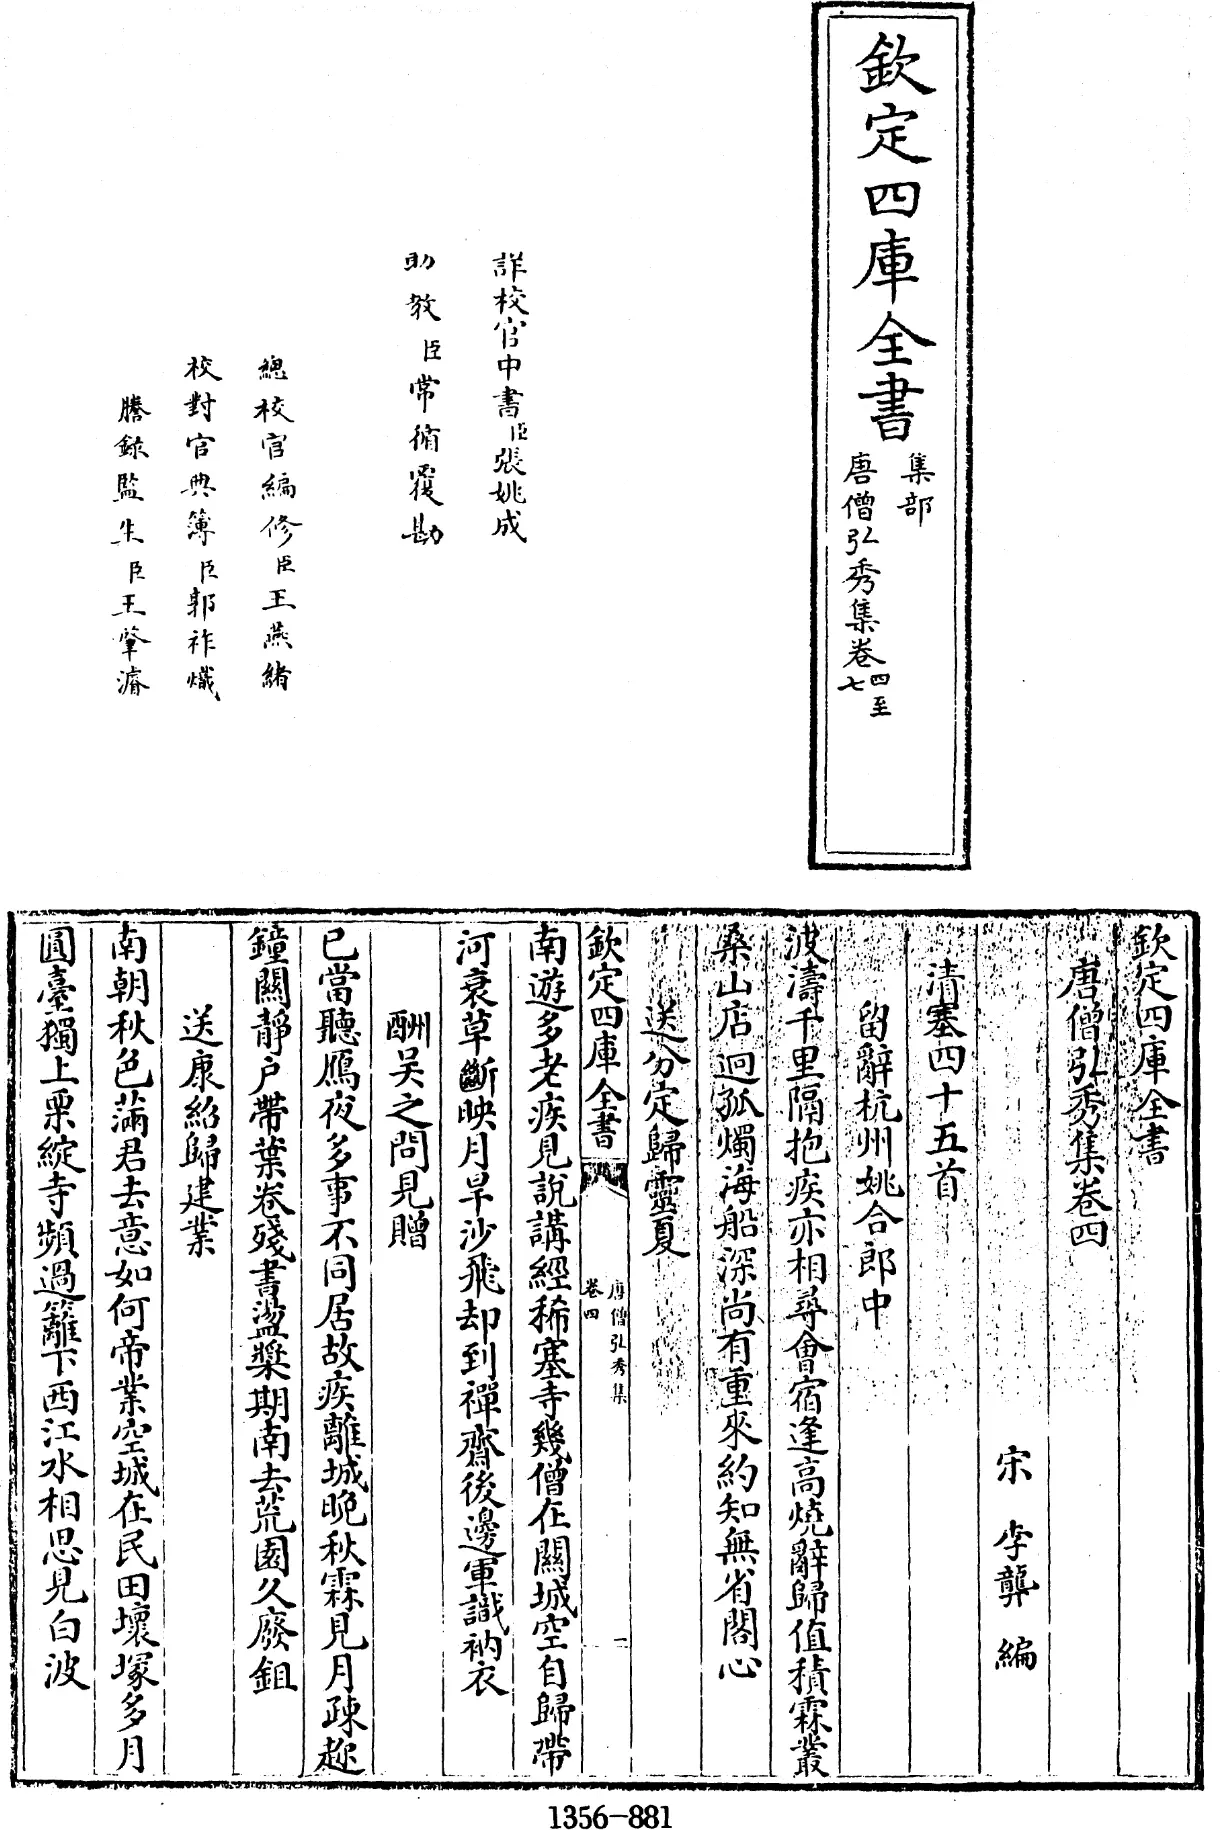 欽定四庫全書
集部
唐僧弘秀集卷四至七
詳校官中書臣張姚成
助教臣常循覆勘
總校官編修臣王燕緒
校對官典簿臣郭祚熾
謄錄監生臣王肇濬
欽定四庫全書
唐僧弘秀集卷四
宋 李龏 編
清塞四十五首
留辭杭州姚合郎中
波濤千里隔抱疾亦相尋會宿逢高燒辭歸值積霖叢
桑山店迥孤燭海船深尚有重來約知無省閣心
送分定歸靈夏
南遊多老疾見說講經稀塞寺幾僧在關城空自歸帶
河衰草斷映月旱沙飛却到禪齋後邊軍識衲衣
酬吴之問見贈
已當聽鴈夜多事不同居故疾離城晚秋霖見月疎趂
鐘關靜户帶葉卷殘書盪槳期南去荒園久廢鉏
送康紹歸建業
南朝秋色滿君去意如何帝業空城在民田壞塚多月
圓臺獨上栗綻寺頻過籬下西江水相思見白波
欽定四庫全書
唐僧弘秀集
卷四
一
1356-881